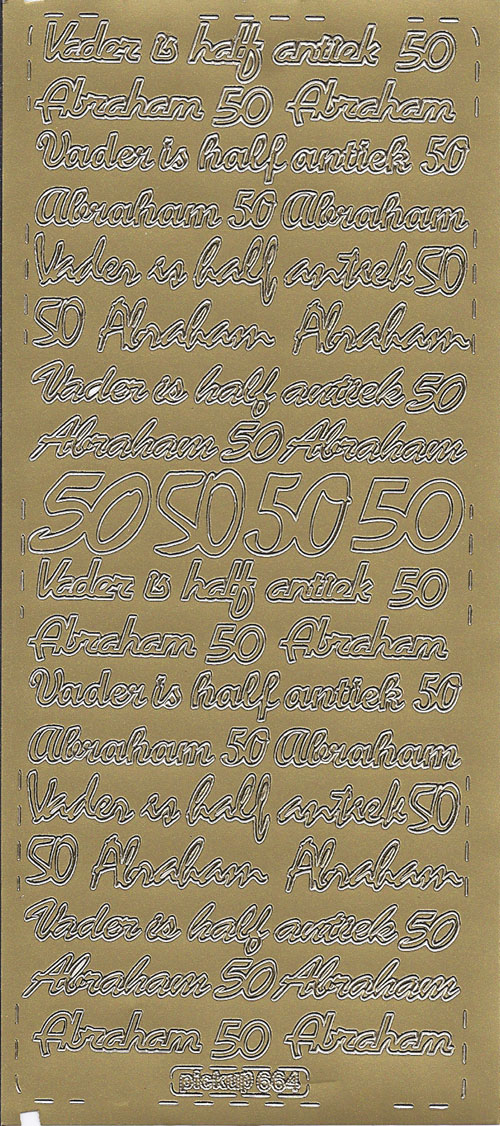 Vader is half antiek 50
Abraham 50 Abraham
Vader is half antiek 50
Abraham 50 Abraham
Vader is half antiek 50
50 Abraham Abraham
Vader is half antiek 50
Abraham 50 Abraham
50 50 50 50
Vader is half antiek 50
Abraham 50 Abraham
Vader is half antiek 50
Abraham 50 Abraham
Vader is half antiek 50
50 Abraham Abraham
Vader is half antiek 50
Abraham 50 Abraham
Abraham 50 Abraham
pickup 664